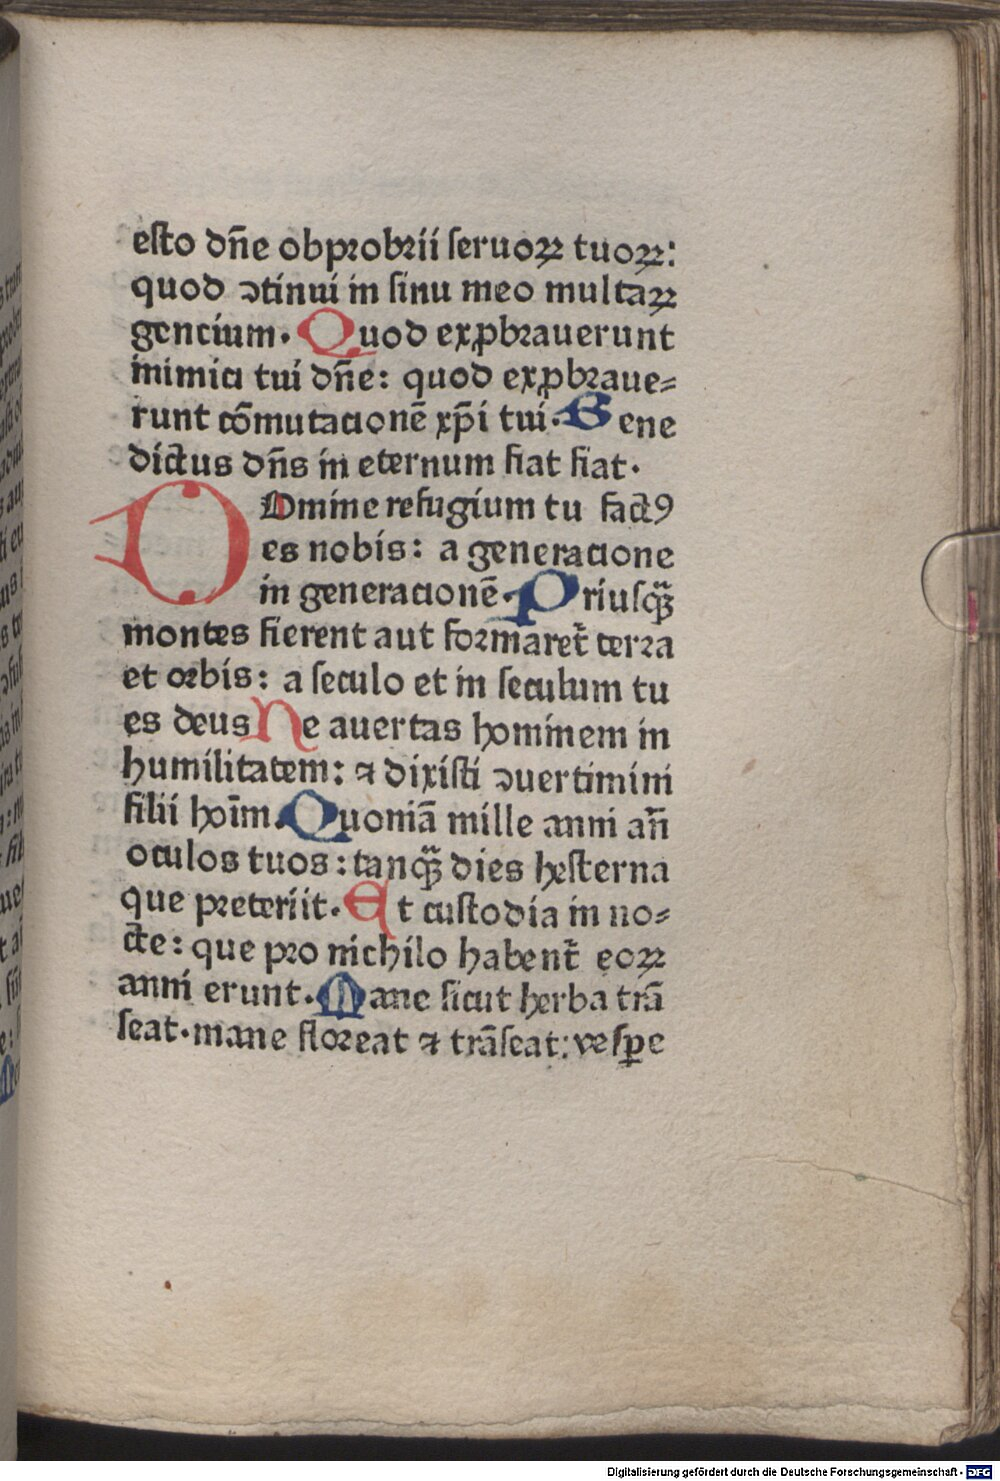 esto dn̄e obprobrii seruoꝝ tuoꝝ:
quod ↄtinui in sinu meo multaꝝ
gencium. Quod exꝓbrauerunt
inimici tui dn̄e: quod exꝓbraue⸗
runt cōmutacionē xp̄i tui. Bene
dictus dn̄s in eternum fiat fiat.
DOmine refugium tu factꝯ
es nobis: a generacione
in generacionē. Priusꝙ̄
montes fierent aut formaret᷑ terra
et orbis: a seculo et in seculum tu
es deus Ne auertas hominem in
humilitatem: ⁊ dixisti ↄuertimini
filii hoīm. Quoniā mille anni an̄
oculos tuos: tanꝙ̄ dies hesterna
que preteriit. Et custodia in no⸗
cte: que pro nichilo habent᷑ eoꝝ
anni erunt. Mane sicut herba trā
seat. mane floreat ⁊ trāseat: vesꝑe
Digitalisierung gefördert durch die Deutsche Forschungsgemeinschaft - DFG